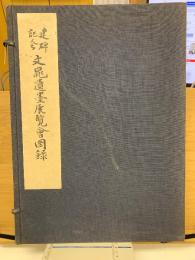 建碑
記念
文晁遺墨展覧會図録